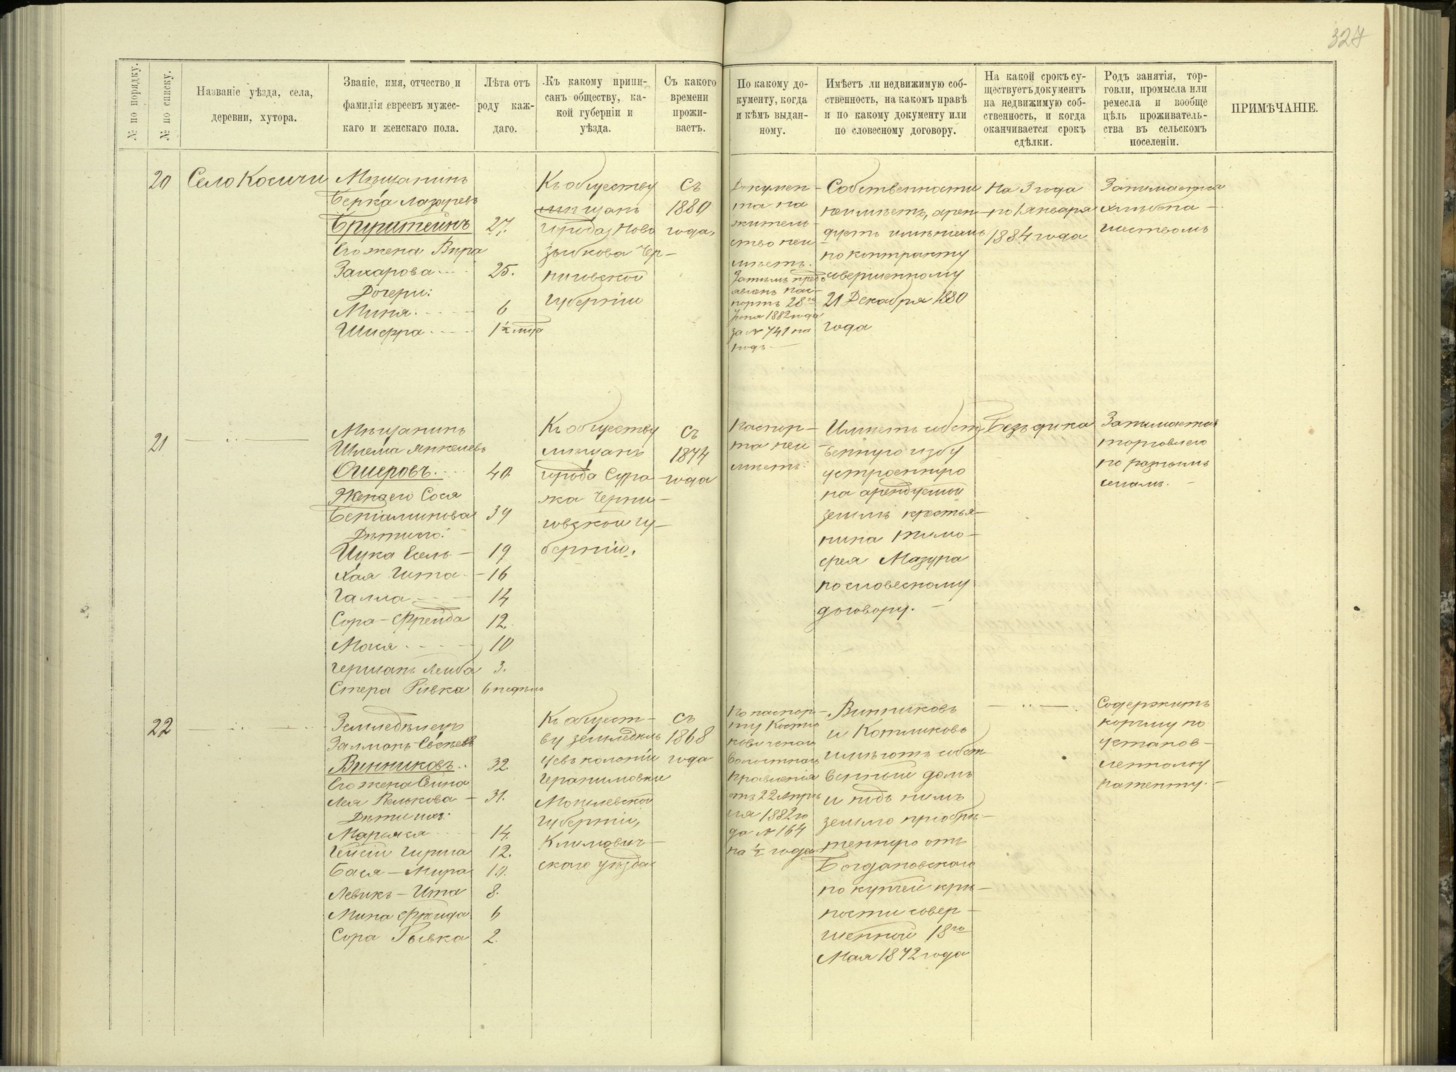 327
№ по порядку.
№ по списку.
Названіе уѣзда, села,
деревни, хутора.
Званіе, имя, отчество и
фамилія евреевъ мужес-
каго и женскаго пола.
Лѣта отъ
роду каж-
даго.
Къ какому припи-
санъ обществу, ка-
кой губерніи и
уѣзда.
Съ какого
времени
прожи-
ваетъ.
По какому до-
кументу, когда
и кѣмъ выдан-
ному.
Имѣетъ ли недвижимую соб-
ственность, на какомъ правѣ
и по какому документу или
по словесному договору.
На какой срокъ су-
ществуетъ документъ
на недвижимую соб-
ственность, и когда
оканчивается срокъ
сдѣлки.
Родъ занятія, тор-
говли, промысла или
ремесла и вообще
цѣль проживатель-
ства въ сельскомъ
поселеніи.
ПРИМѢЧАНІЕ.
20
Село Косичи
Мѣщанинъ
Берка Лазаревъ
27.
Его жена
Захарова
25.
Дочери:
Миня
6
Шифра
1½ года
Къ обществу
мѣщанъ
города Ново
зыбкова Чер-
ниговской
губерніи
Съ
1880
года,
Докумен-
та на
житель-
ство неи
мѣетъ.
за № 741 на
годъ
Собственности
неимѣетъ, арен-
дуетъ имѣніемъ
по контракту
совершенному
21 Декабря 1880
года
На 3 года
по 1 января
1884 года
Занимается
хлѣбопа-
шествомъ
21
Мѣщанинъ
Ошеровъ.
40.
Жена его Сося
Беніаминова
39
Дѣти его:
19
Хая Гита
16
Галла
14
Сора-Фрейда
12.
Мося
10
Германъ Лейба
3.
Стера Ривка
6 недѣль
Къ обществу
мѣщанъ
города Сура-
жа Черни-
говской гу-
берніи.
Съ
1874
года
Паспор-
та неи
мѣетъ
Имѣетъ собст
венную избу
устроенную
на арендуемой
землѣ крестья-
нина Тимо-
фея Мазура
по словесному
договору.
Безъ срока
Занимается
торговлею
по разнымъ
селамъ.
22
Земледѣлецъ
Залманъ
Винниковъ.
32.
Его жена
31.
Дѣти ихъ:
14
12.
Бася-Мира
10.
Левикъ-Ита
8.
Мина Фрейда
6
Сора Рывка
2.
Къ общест-
ву земледѣль
цевъ колоніи
Могилевской
губерніи,
Климович-
скаго уѣзда
Съ
1868
года
По паспор-
ту Кости
ковичскаго
Волостнаго
Правленія
отъ 22 Апрѣ
ля 1882 го
да № 164
на ½ года
Винниковъ
и Котликовъ
имѣютъ собст
венный домъ
и подъ нимъ
землю пріобрѣ-
тенную отъ
Богдановскаго
по купчей крѣ-
пости совер-
шенной 18го
Мая 1872 года
Содержитъ
корчму по
установ-
ленному
патенту.